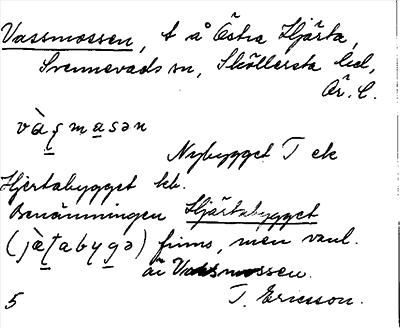 Vassmossen, t å Östra Hjärta,
Svennevads sn, Sköllersta hd,
Ör. l.
và̱ʂma̱sən
Nybygget T ek
Hjertabygget kb.
Benämningen Hjärtabygget
(jæ̀ʈabygə) finns, men vanl.
är Vassmossen.
5 T. Ericsson.